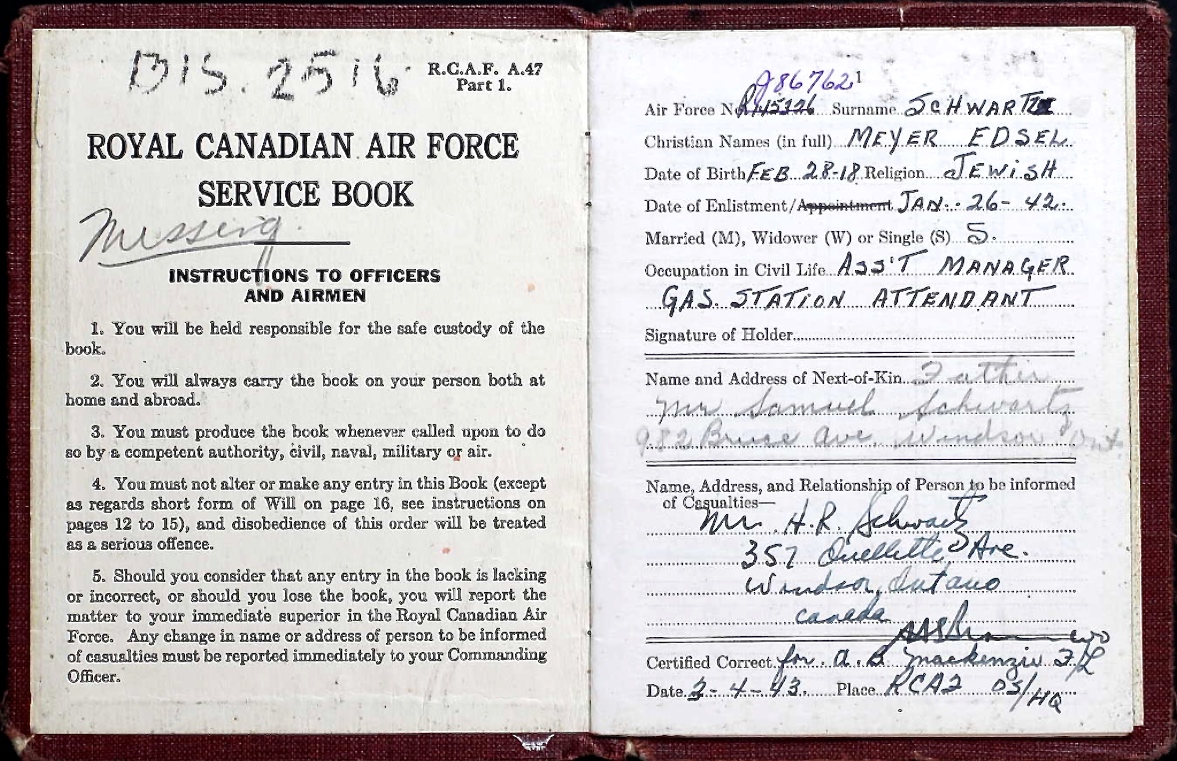 DIS. 2516
R.C.A.F. A.47
Part 1.
ROYAL CANADIAN AIR FORCE
SERVICE BOOK
Messing
INSTRUCTIONS TO OFFICERS
AND AIRMEN
1. You will be held responsible for the safe custody of the
book.
2. You will always carry the book on your person both at
home and abroad.
3. You must produce the book whenever called upon to do
so by a competent authority, civil, naval, military or air.
4. You must not alter or make any entry in this Book (except
as regards short form of Will on page 16, see instructions on
pages 12 to 15), and disobedience of this order will be treated
as a serious offence.
5. Should you consider that any entry in the book is lacking
or incorrect, or should you lose the book, you will report the
matter to your immediate superior in the Royal Canadian Air
Force. Any change in name or address of person to be informed
of casualties must be reported immediately to your Commanding
Officer.
J86762 1
Air Force No. Surname SCHWARTZ
Christian Names (in full) MEYER EDSEL
Date of Birth FEB 28-18 Religion JEWISH
Date of Enlistment/Appointment JAN. 26-42.
Married (M), Widower (W) or Single (S) S.
Occupation in Civil Life ASS'T MANAGER
GAS STATION ATTENDANT
Signature of Holder
Name and Address of Next-of-Kin Father
Mr. Samuel Schwartz
Ave. Windsor Ont
Name, Address, and Relationship of Person to be informed
of Casualties—
Mr. H.R. Schwartz
357 Ouellette Ave.
Windsor, Ontario
Canada
Certified Correct for A B Mackenzie F/L
Date 3-4-43. Place RCAF OS/HQ